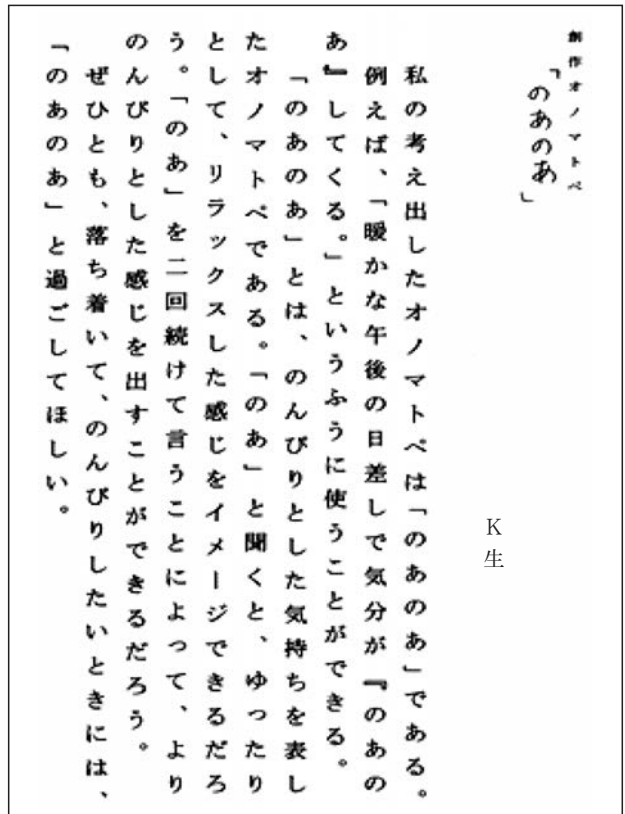 創作オノマトペ
「のあのあ」
K生
私の考え出したオノマトペは「のあのあ」である。
例えば、「暖かな午後の日差しで気分が『のあの
あ』してくる。」というふうに使うことができる。
「のあのあ」とは、のんびりとした気持ちを表し
たオノマトペである。「のあ」と聞くと、ゆったり
として、リラックスした感じをイメージできるだろ
う。「のあ」を二回続けて言うことによって、より
のんびりとした感じを出すことができるだろう。
ぜひとも、落ち着いて、のんびりしたいときには、
「のあのあ」と過ごしてほしい。